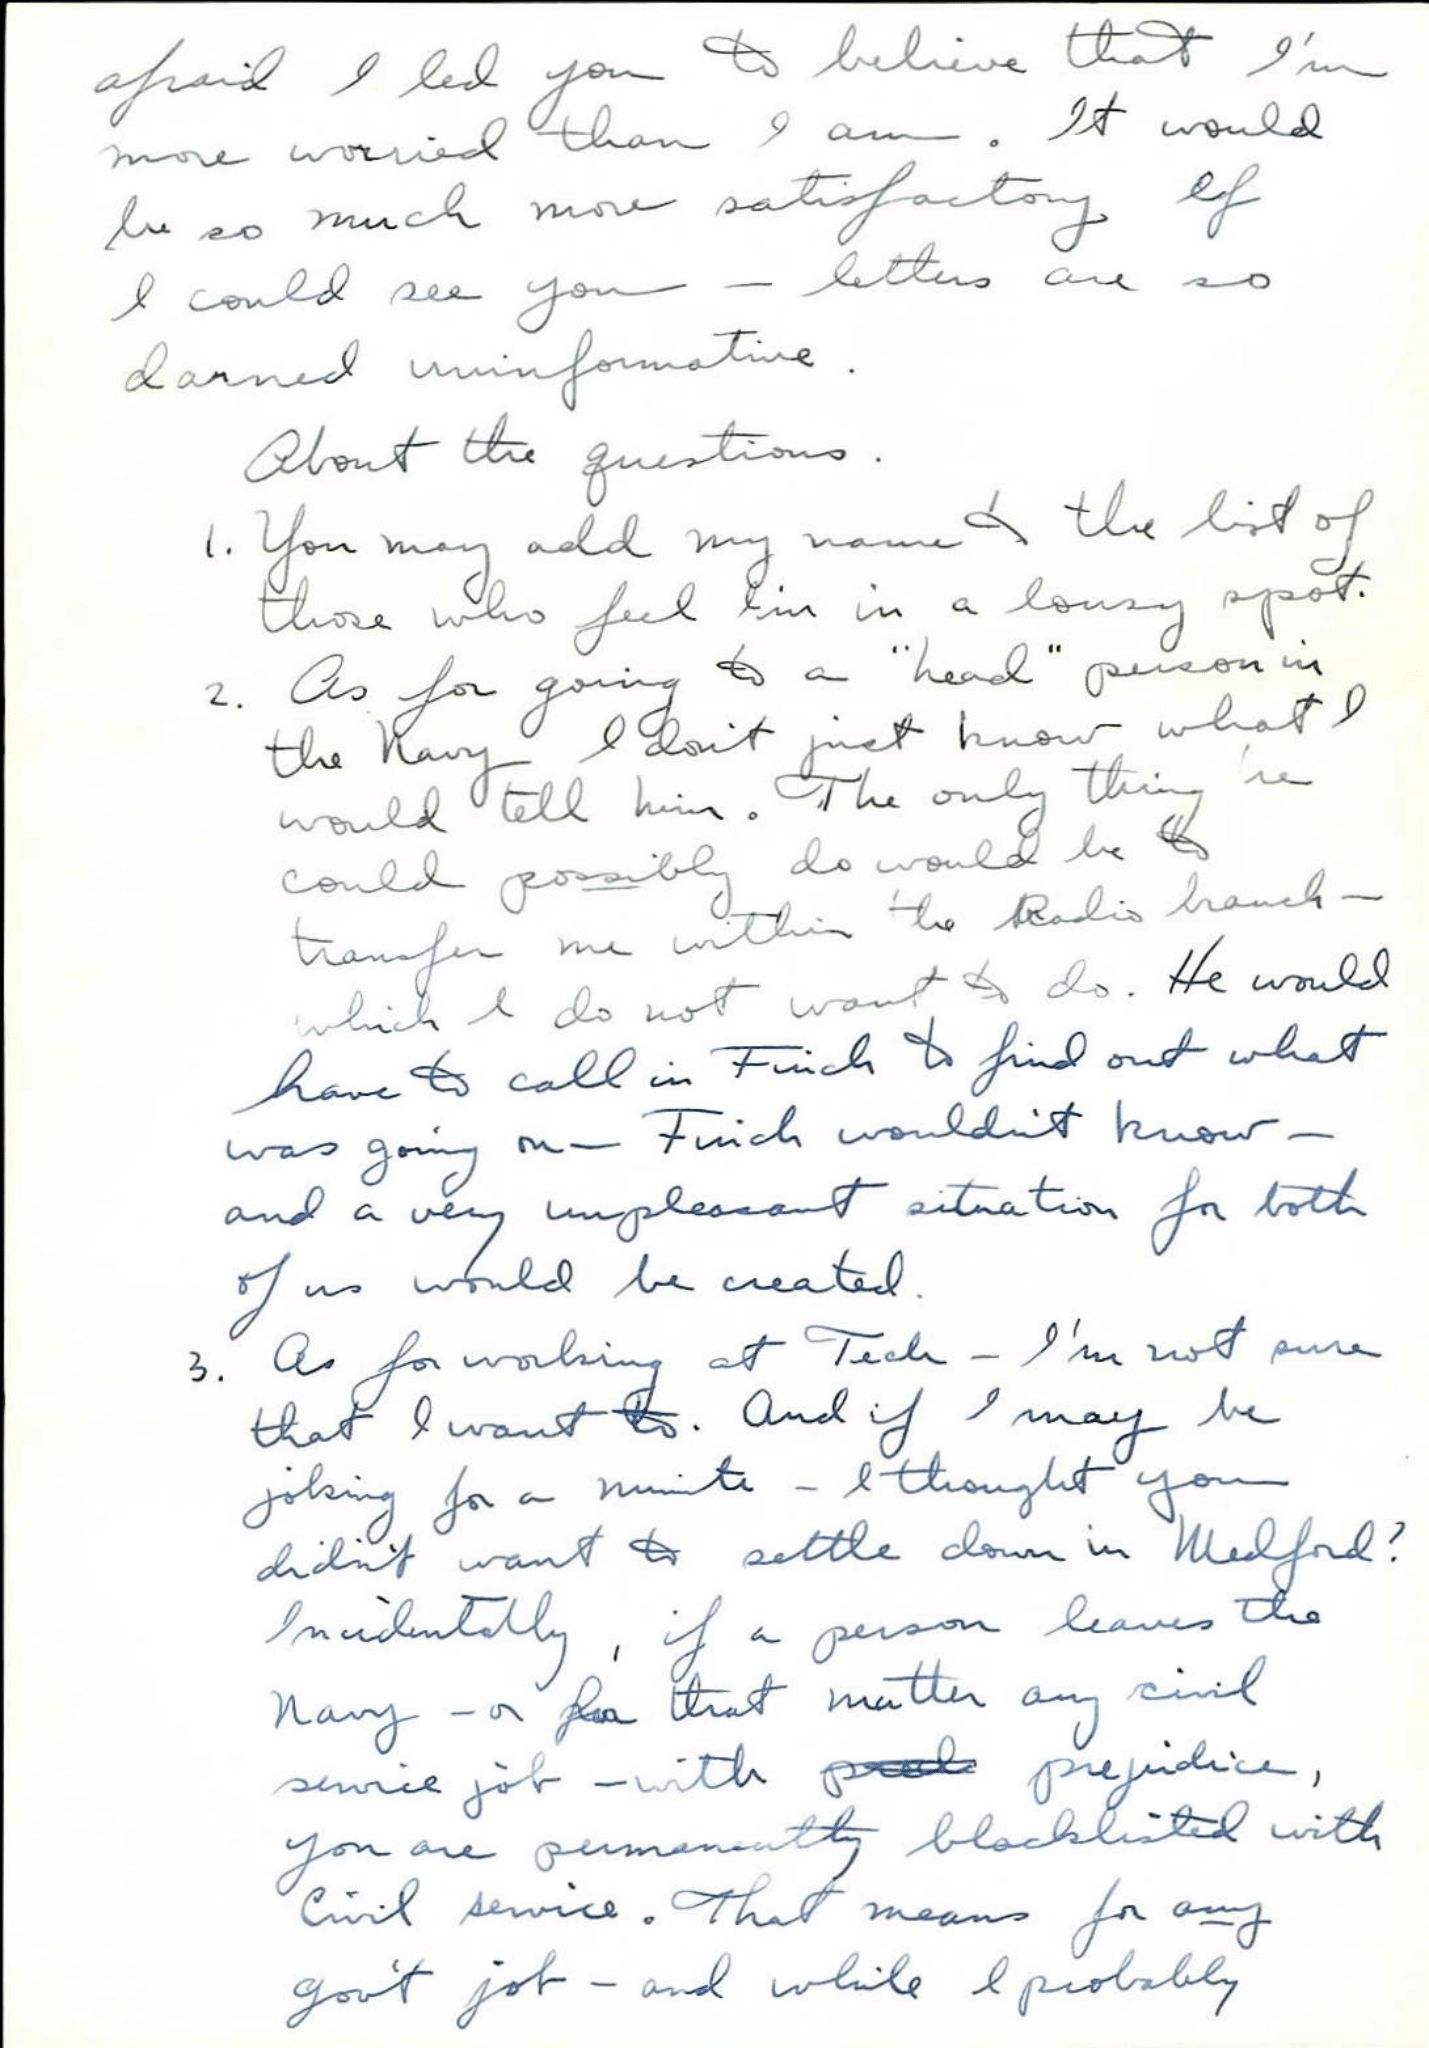 afraid I led you to believe that I'm
more worried than I am. It would
be so much more satisfactory if
I could see you — letters are so
darned uninformative.
About the questions.
1. You may add my name to the list of
those who feel I'm in a lousy spot.
2. As for going to a "head" person in
the Navy I don't just know what I
would tell him. The only thing 're
could possibly do would be to
transfer me within the Radio branch —
which I do not want to do. He would
have to call in Finch to find out what
was going on — Finch wouldn't know —
and a very unpleasant situation for both
of us would be created.
3. As for working at Tech — I'm not sure
that I want to. And if I may be
joking for a minute — I thought you
didn't want to settle down in Medford?
Incidentally, if a person leaves the
Navy — or for that matter any civil
service job — with prejudice,
you are permanently blacklisted with
Civil service. That means for any
gov't job — and while I probably